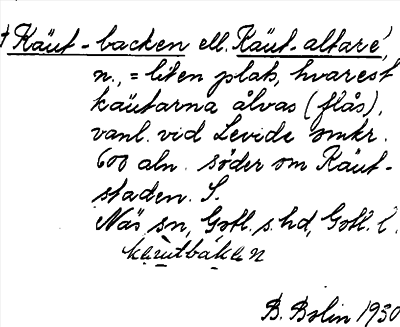 † Käut-backen ell. Käut-altaré,
n., = liten plats, hvarest
käutarna ålvas (flås),
vanl. vid Levide omkr.
600 aln. söder om Käut-
staden. S.
Näs sn, Gotl. s. hd, Gotl. l.
kæutbákan
B. Bolin 1930